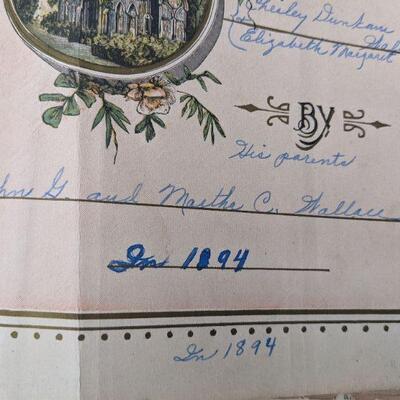 Chesley Dunkane
Elizabeth Margaret
BY
His parents
and Martha C. Wallace
In 1894
In 1894